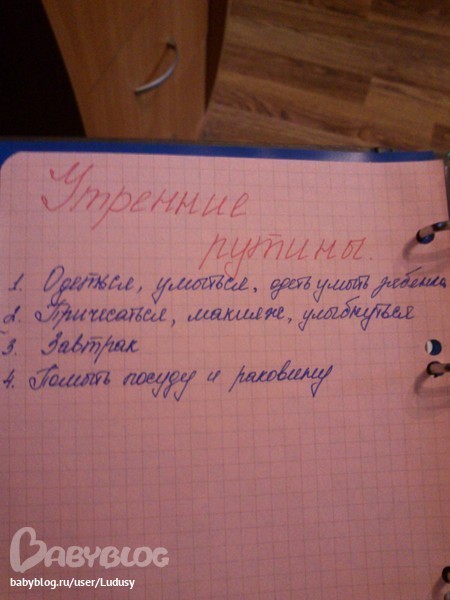 Утренние
рутины.
1. Одеться, умыться, одеть умыть ребенка
2. Причесаться, макияж, улыбнуться
3. Завтрак
4. Помыть посуду и раковину
BABYBLOG
babyblog.ru/user/Ludusy